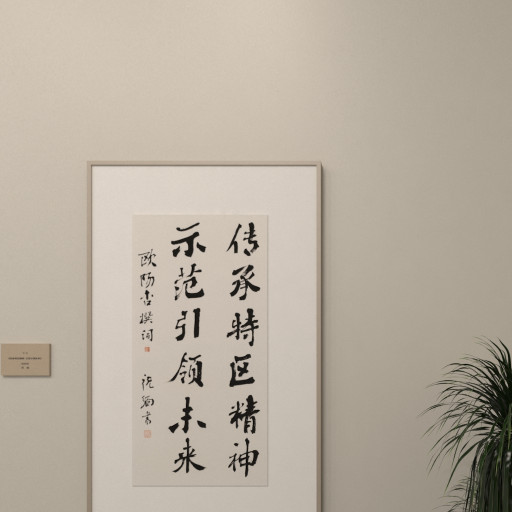 传承特区精神
示范引领未来
欧阳杏撰词